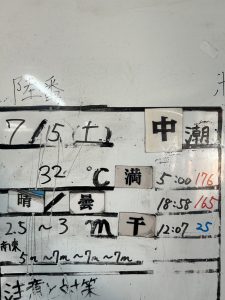 陸番
7/5(土) 中潮
32℃ 満 5:00 176
晴/曇 18:58 165
2.5～3m 干 12:07 25
南東
5m～7m～7m～7m
注意と対策